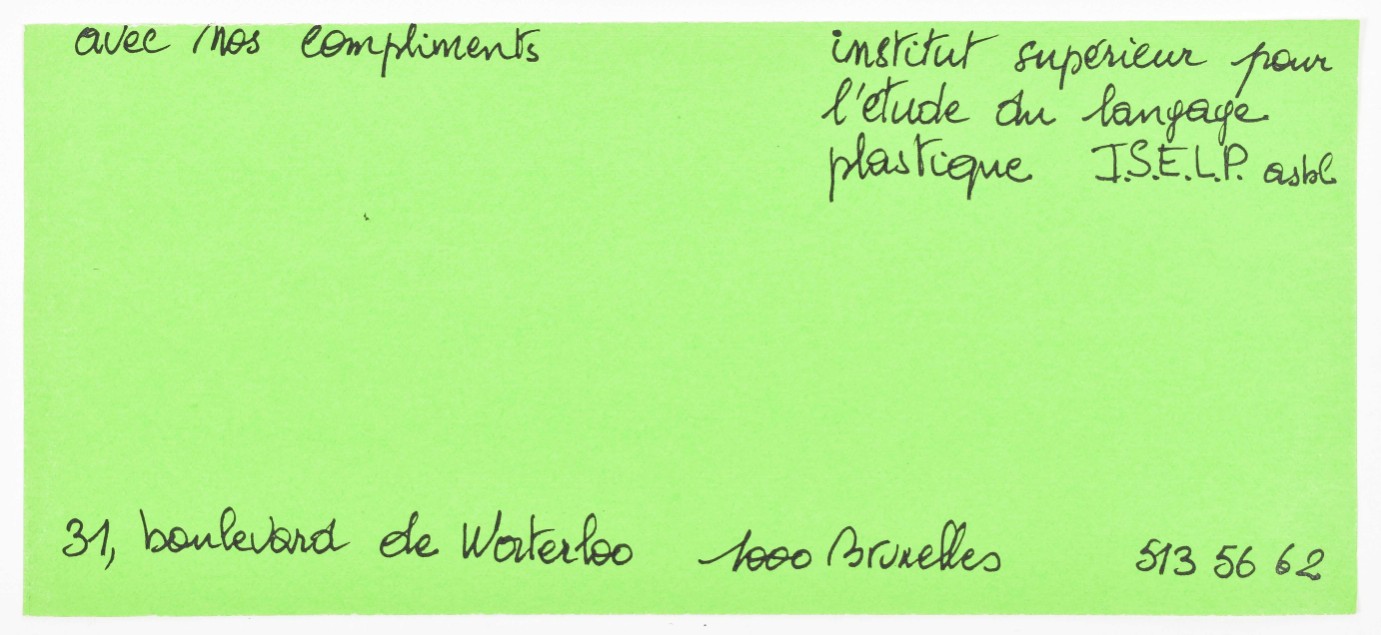 avec nos compliments
institut supérieur pour
l'étude du langage
plastique I.S.E.L.P. asbl
31, boulevard de Waterloo 1000 Bruxelles 513 56 62